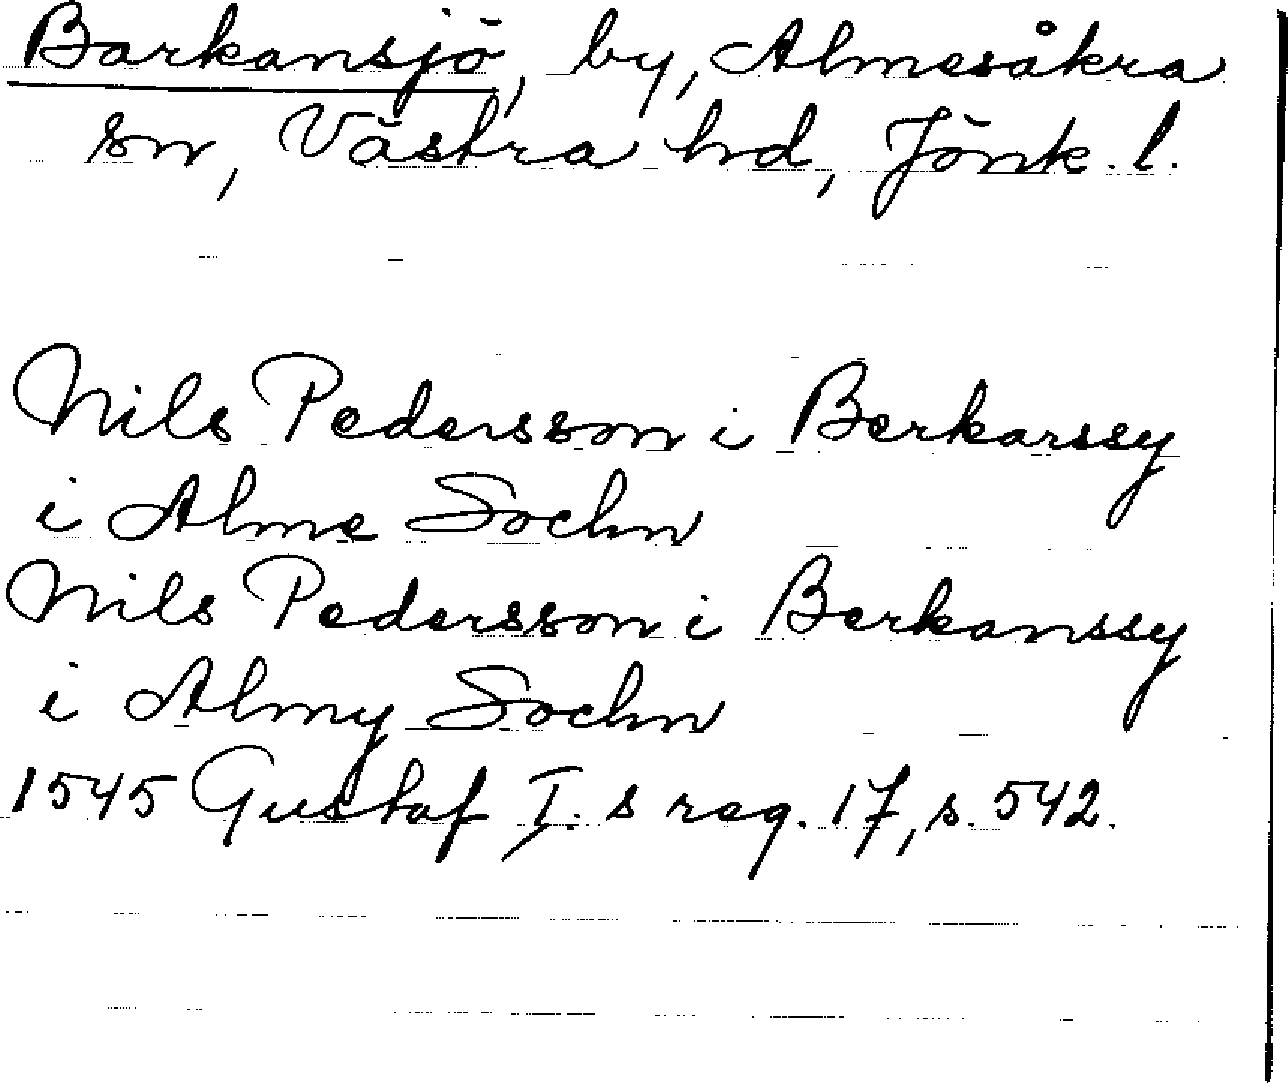 Barkansjö, by, Almesåkra
sn, Västra hd, Jönk. l.
Nils Pedersson i Berkarssy
i Alme Sochn
Nils Pedersson i Berkanssy
i Almy Sochn
1545 Gustaf I. s reg. 17, s. 542.